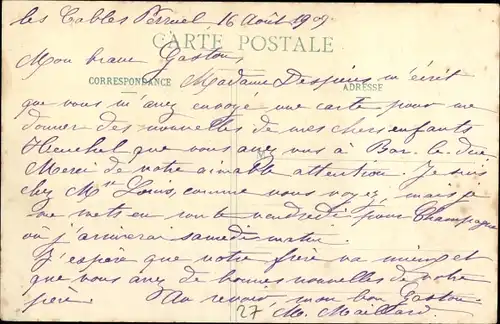 les Tables Verniel 16 Août 1909
CARTE POSTALE
Mon brave Gaston,
CORRESPONDANCE
ADRESSE
Madame m'écrit
que vous m'avez envoyé une carte pour me
donner des nouvelles de mes chers enfants
que vous avez vus à Bar-le-duc
Merci de votre aimable attention. Je suis
chez Mr Louis, comme vous voyez, mais je
me mets en route vendredi pour Champagne
où j'arriverai samedi matin.
J'espère que votre frère va mieux et
que vous avez de bonnes nouvelles de votre
père. Au revoir, mon bon Gaston.
27 M. Maillard.